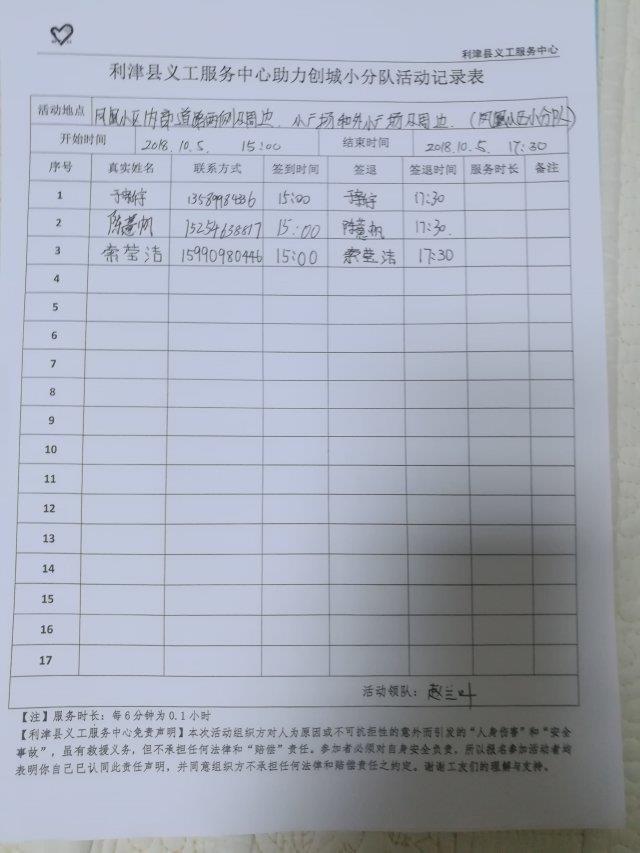 利津县义工服务中心
利津县义工服务中心助力创城小分队活动记录表
活动地点 凤凰小区内部道路两侧及周边、小广场和外小广场及周边。(凤凰小区小分队)
开始时间 2018.10.5. 15:00 结束时间 2018.10.5. 17:30
序号 真实姓名 联系方式 签到时间 签退 签退时间 服务时长 备注
1 15:00 17:30
2 陈慧帆 15:00 陈慧帆 17:30.
3 索莹洁 15990980446 15:00 索莹洁 17:30
4
5
6
7
8
9
10
11
12
13
14
15
16
17
活动领队: 赵兰叶
【注】服务时长:每6分钟为0.1小时
【利津县义工服务中心免责声明】本次活动组织方对人为原因或不可抗拒性的意外而引发的“人身伤害”和“安全
事故”,虽有救援义务,但不承担任何法律和“赔偿”责任。参加者必须对自身安全负责,所以报名参加活动者均
表明你自己已认同此责任声明,并同意组织方不承担任何法律和赔偿责任之约定。谢谢工友们的理解与支持。